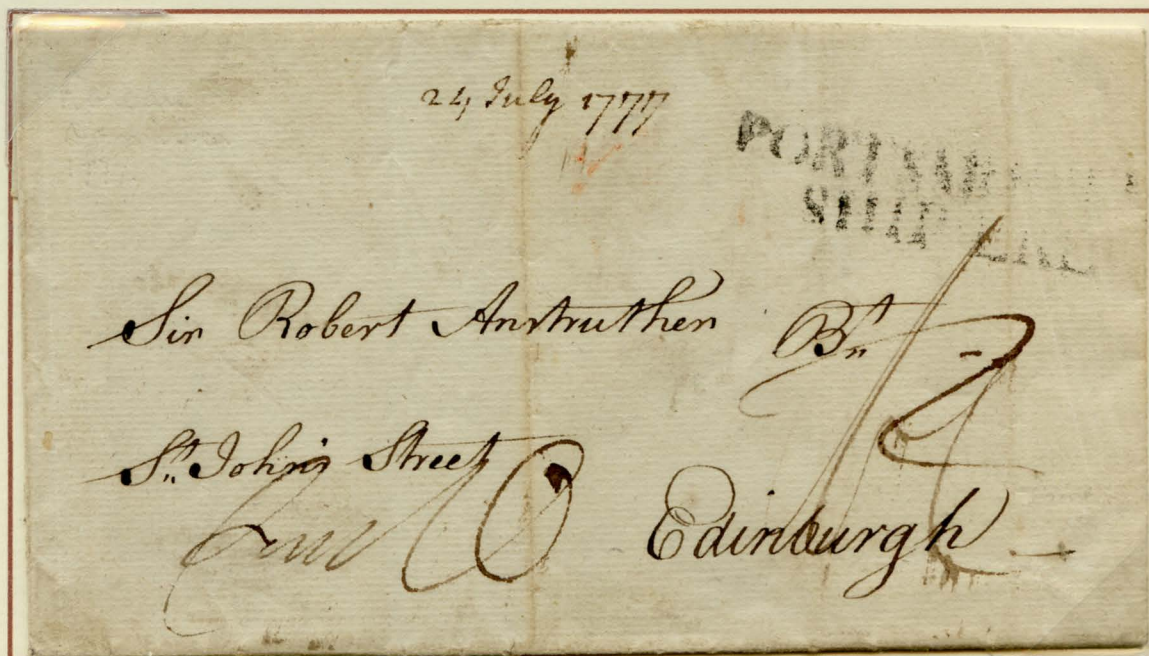 24 July 1777
PORTSMOUTH
SHIP LRE
Sir Robert Anstruther Bt
St. John's Street
Edinburgh